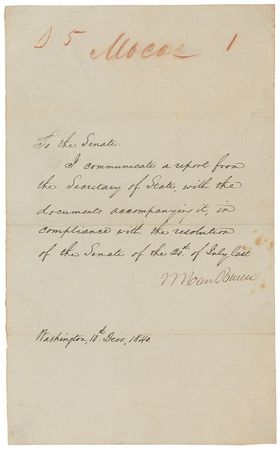 D 5 1
To the Senate:
I communicate a report from
the Secretary of State, with the
documents accompanying it, in
compliance with the resolution
of the Senate of the of July last
M Van Buren
Washington, 10th Decr, 1840.